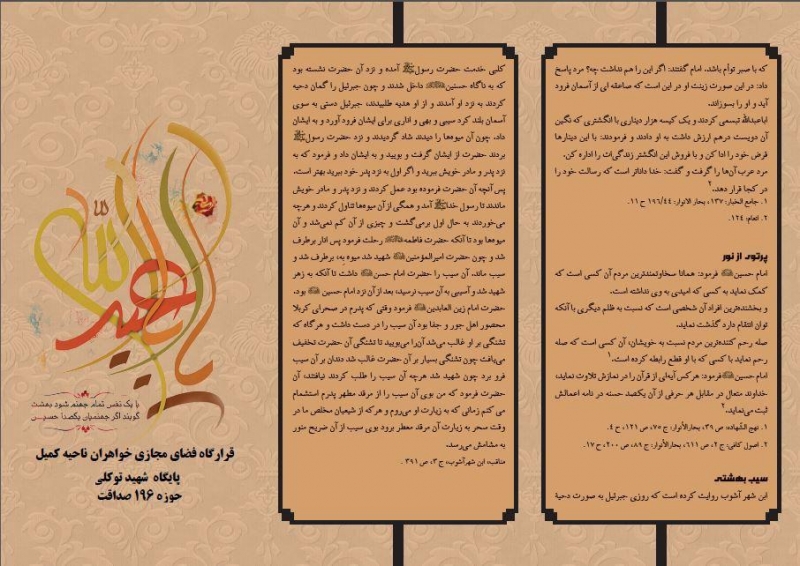 که با صبر توأم باشد. امام گفتند: اگر این را هم نداشت چه؟ مرد پاسخ
داد: در این صورت زینت او در این است که صاعقه ای از آسمان فرود
آید و او را بسوزاند.
اباعبدالله تبسمی کردند و یک کیسه هزار دیناری با انگشتری که نگین
آن دویست درهم ارزش داشت به او دادند و فرمودند: با این دینارها
قرض خود را ادا کن و با فروش این انگشتر زندگی‌ات را اداره کن.
مرد عرب آن‌ها را گرفت و گفت: خدا داناتر است که رسالت خود را
در کجا قرار دهد.۲
۱. جامع الخبار: ۱۳۷، بحار الانوار: ۱۹۶/۴۴ ح ۱۱.
۲. انعام: ۱۲۴.
پرتوی از نور
امام حسین فرمود: همانا سخاوتمندترین مردم آن کسی است که
کمک نماید به کسی که امیدی به وی نداشته است.
و بخشنده‌ترین افراد آن شخصی است که نسبت به ظلم دیگری با آنکه
توان انتقام دارد گذشت نماید.
صله رحم کننده‌ترین مردم نسبت به خویشان، آن کسی است که صله
رحم نماید با کسی که با او قطع رابطه کرده است.۱
امام حسین فرمود: هرکس آیه‌ای از قرآن را در نمازش تلاوت نماید؛
خداوند متعال در مقابل هر حرفی از آن یکصد حسنه در نامه اعمالش
ثبت می‌نماید.۲
۱. نهج الشهاده: ص ۳۹، بحارالأنوار: ج ۷۵، ص ۱۲۱، ح ۴.
۲. اصول کافی: ج ۲، ص ۶۱۱، بحارالأنوار: ج ۸۹، ص ۲۰۰، ح ۱۷.
سیب بهشتی
ابن شهر آشوب روایت کرده است که روزی جبرئیل به صورت دحیة
کلبی خدمت حضرت رسول آمده و نزد آن حضرت نشسته بود
که به ناگاه حسنین داخل شدند و چون جبرئیل را گمان دحیه
کردند به نزد او آمدند و از او هدیه طلبیدند، جبرئیل دستی به سوی
آسمان بلند کرد سیبی و بهی و اناری برای ایشان فرود آورد و به ایشان
داد. چون آن میوه‌ها را دیدند شاد گردیدند و نزد حضرت رسول
بردند حضرت از ایشان گرفت و بویید و به ایشان داد و فرمود که به
نزد پدر و مادر خویش ببرید و اگر اول به نزد پدر خود ببرید بهتر است.
پس آنچه آن حضرت فرموده بود عمل کردند و نزد پدر و مادر خویش
ماندند تا رسول خدا آمد و همگی از آن میوه‌ها تناول کردند و هرچه
می‌خوردند به حال اول برمی‌گشت و چیزی از آن کم نمی‌شد و آن
میوه‌ها بود تا آنکه حضرت فاطمه رحلت فرمود پس انار برطرف
شد و چون حضرت امیرالمؤمنین شهید شد میوه به، برطرف شد و
سیب ماند، آن سیب را حضرت امام حسن داشت تا آنکه به زهر
شهید شد و آسیبی به آن سیب نرسید، بعد از آن نزد امام حسین بود.
حضرت امام زین العابدین فرمود وقتی که پدرم در صحرای کربلا
محصور اهل جور و جفا بود آن سیب را در دست داشت و هرگاه که
تشنگی بر او غالب می‌شد آن‌را می‌بویید تا تشنگی آن حضرت تخفیف
می‌یافت چون تشنگی بسیار بر آن حضرت غالب شد دندان بر آن سیب
فرو برد چون شهید شد هرچه آن سیب را طلب کردند نیافتند، آن
حضرت فرمود که من بوی آن سیب را از مرقد مطهر پدرم استشمام
می کنم زمانی که به زیارت او می‌روم و هرکه از شیعیان مخلص ما در
وقت سحر به زیارت آن مرقد معطر برود بوی سیب از آن ضریح منور
به مشامش می‌رسد.
مناقب، ابن شهرآشوب، ج ۳، ص ۳۹۱ .
با یک نفس تمام جهنم شود بهشت
گویند اگر جهنمیان یکصدا حسین
قرارگاه فضای مجازی خواهران ناحیه کمیل
پایگاه شهید توکلی
حوزه ۱۹۶ صداقت